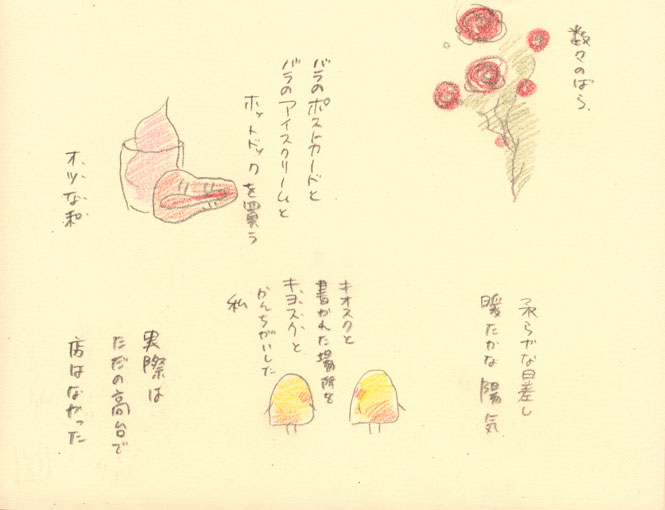 数々のばら、
バラのポストカードと
バラのアイスクリームと
ホットドックを買う
オツな私
柔らかな日差し
暖たかな陽気
キオスクと
書かれた場所を
キヨズクと
かんちがいした
私
実際は
ただの高台で
店はなかった